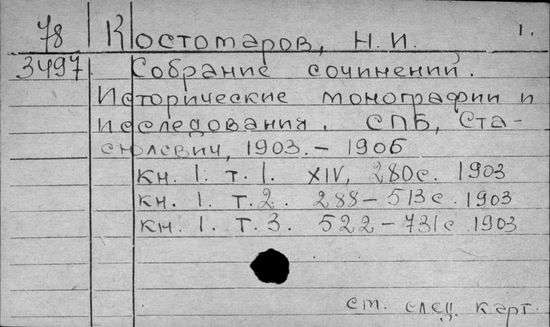 78 Костомаров, Н. И. 1.
3497 Собрание сочинений.
Исторические монографии и
исследования. СПБ, Ста-
сюлевич, 1903. - 1906
кн. 1. т. 1. XIV, 280с. 1903
кн. 1. т. 2. 288-513с. 1903
кн. 1. т. 3. 522-731с. 1903
см. след. карт.